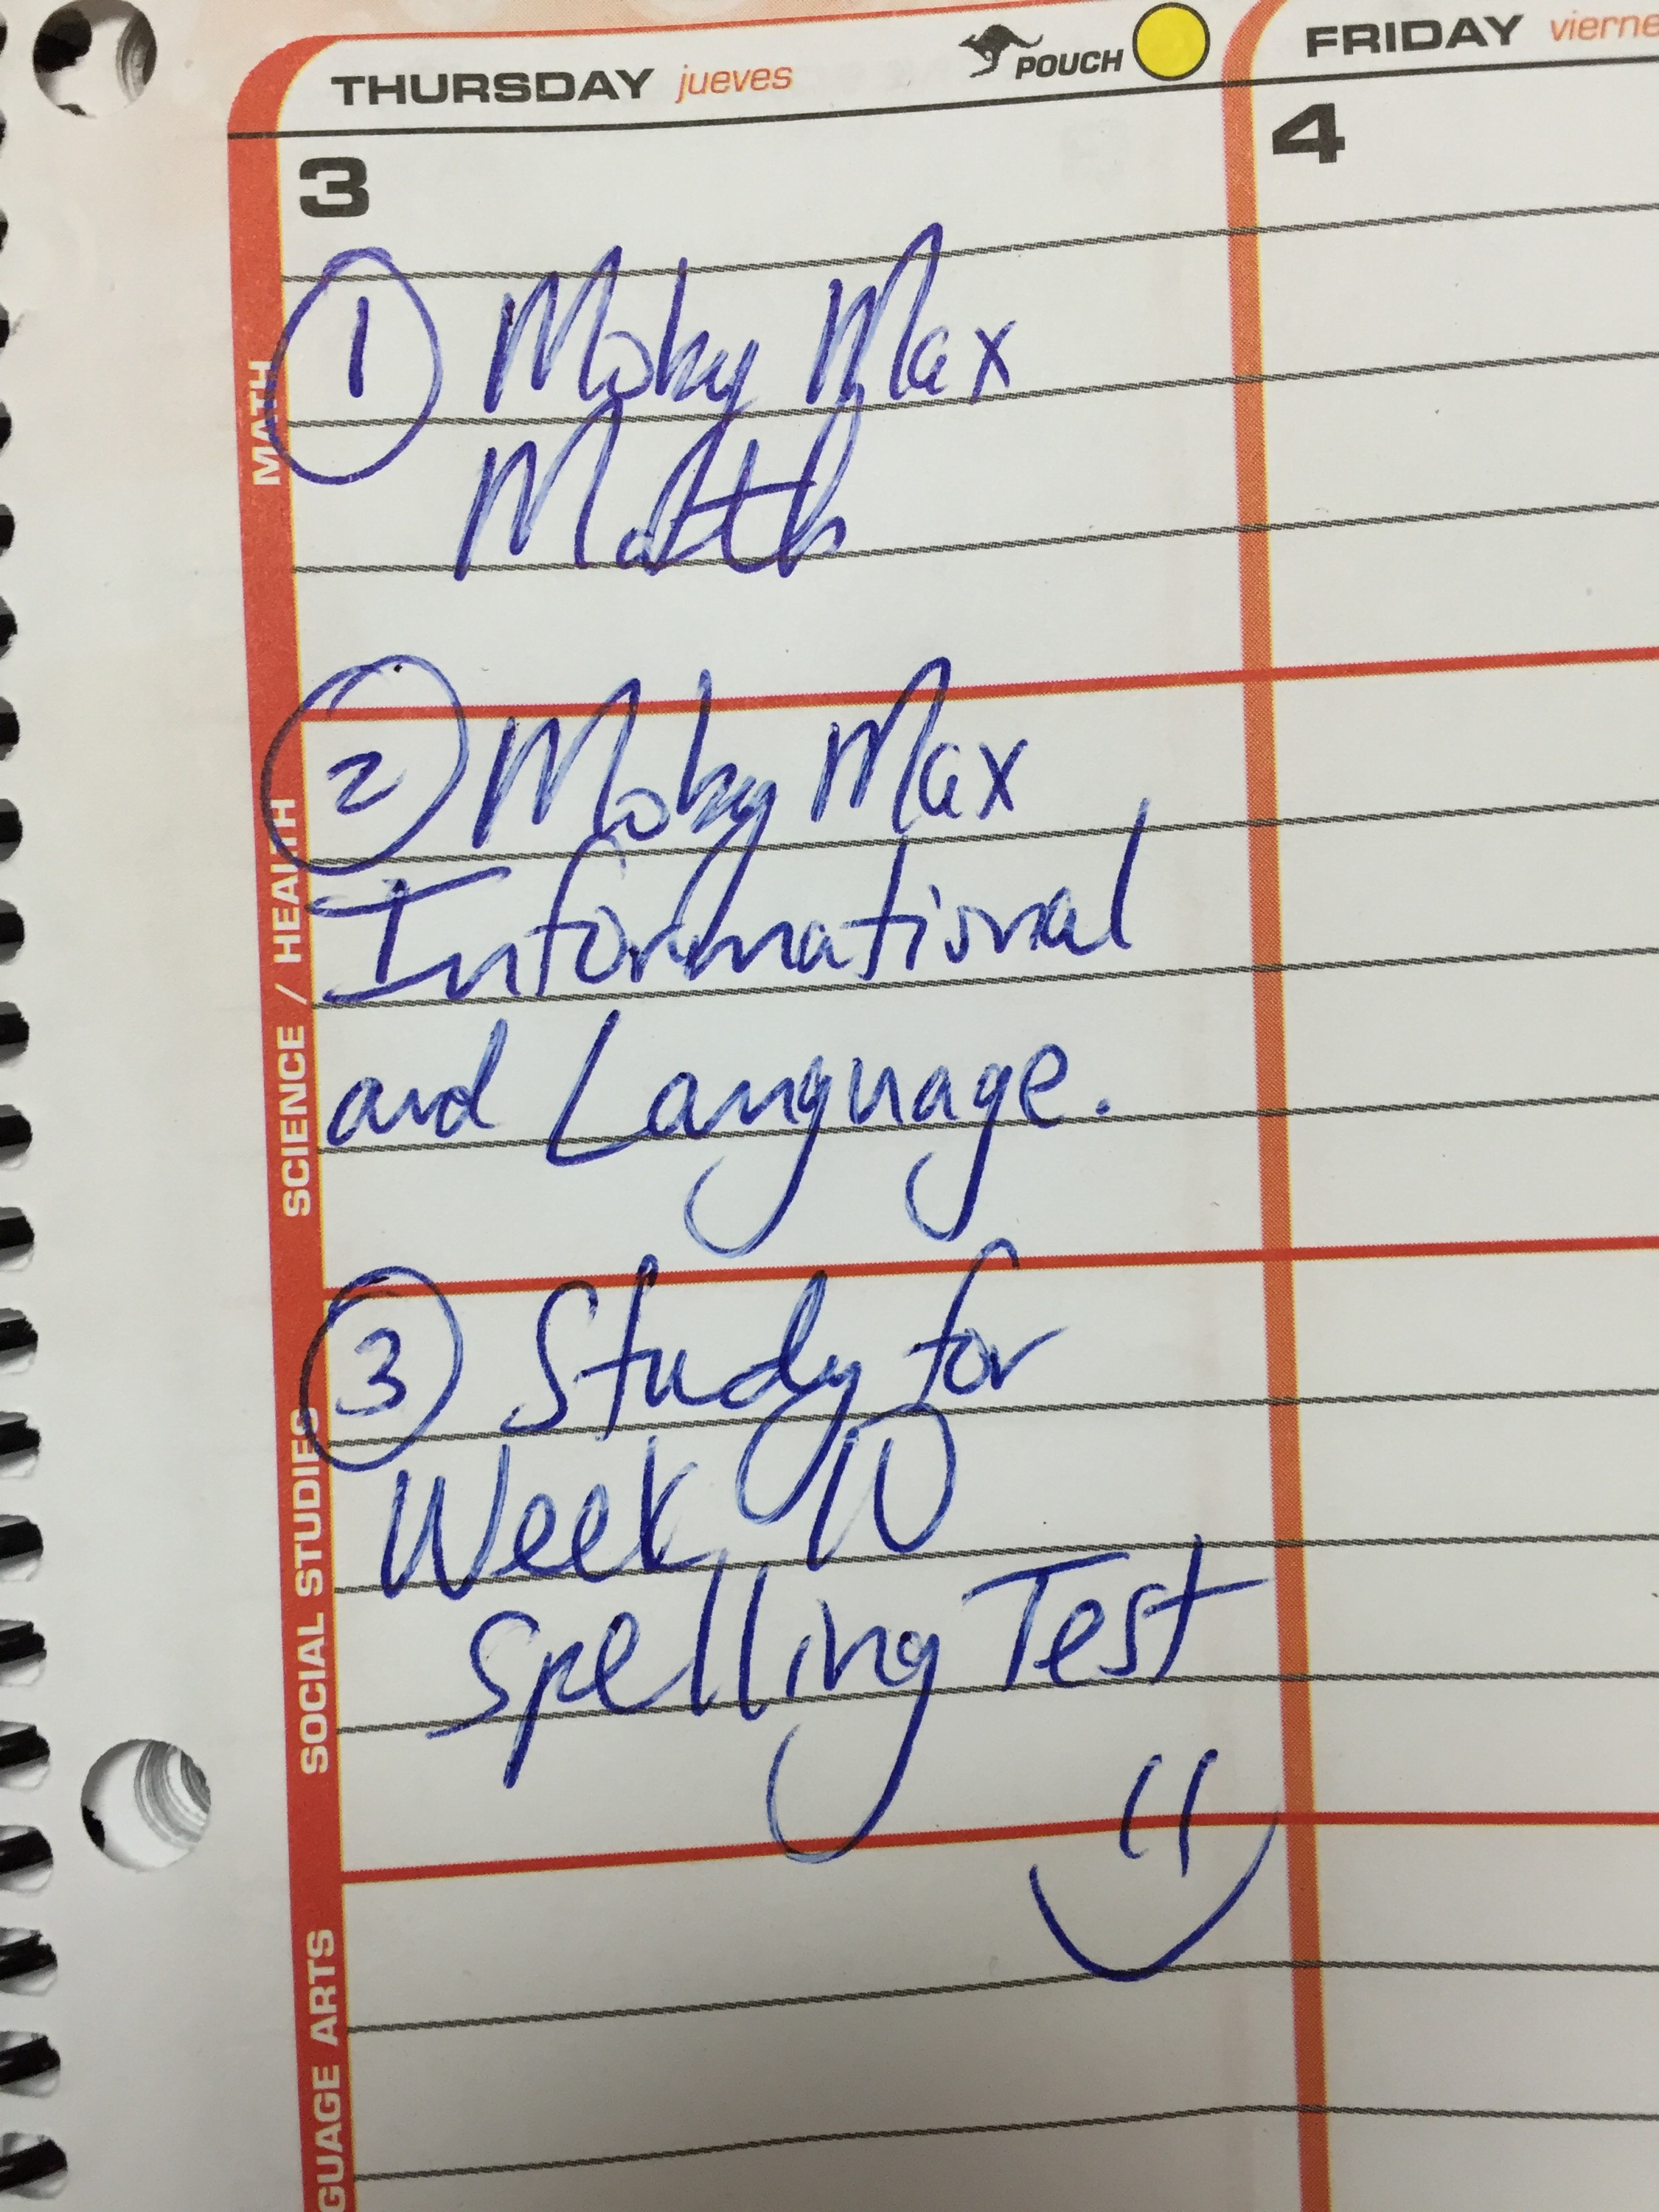 THURSDAY jueves POUCH
FRIDAY vierne
3
4
MATH
1 Moby Max
Math
SCIENCE / HEALTH
2 Moby Max
Informational
and Language.
SOCIAL STUDIES
3 Study for
Week 10
Spelling Test
GUAGE ARTS